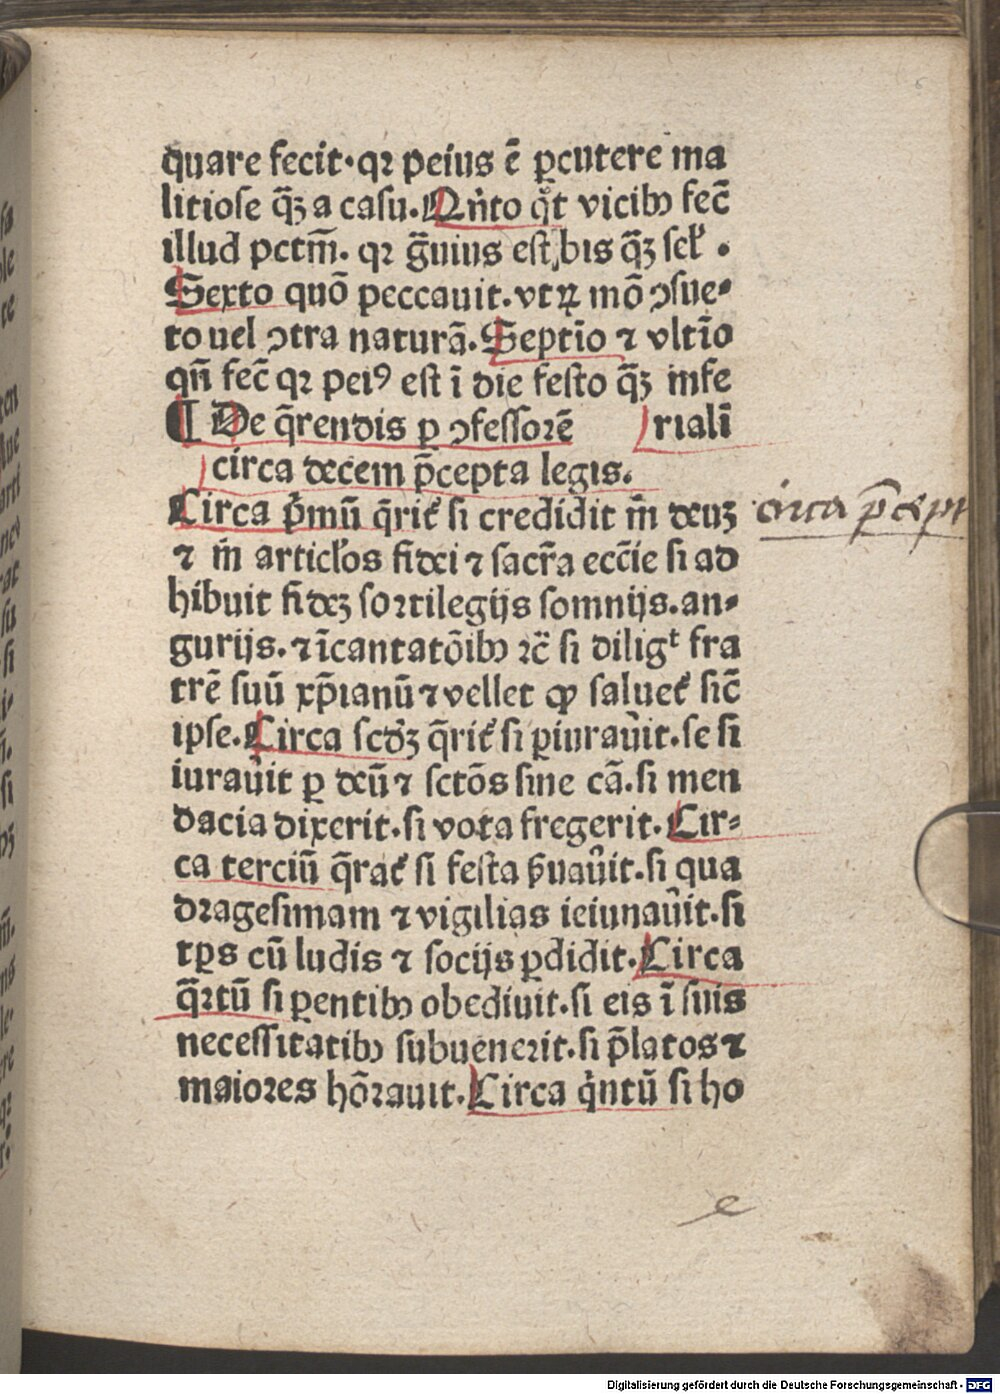 quare fecit·qꝛ peius ē ꝑcutere ma
litiose qꝫ̄ a casu.Qn̄to qͦt vicibꝰ fec̄
illud pctm̄. qꝛ ḡuius est bis qꝫ̄ sel̄ .
Sexto quō peccauit.vtꝝ mō ↄsue⸗
to uel ↄtra naturā.Septīo ⁊ vltīo
qn̄ fec̄ qꝛ peiꝰ est ī die festo qꝫ̄ infe
¶ De q̄rendis ꝑ ↄfessorē riali
circa decem p̄cepta legis.
Circa p̄mū q̄rit̄ si credidit m̄ deuꝫ
⁊ m̄ articl̄os fidei ⁊ sacr̄a ecc̄ie si ad
hibuit fidēꝫ sortilegijs somnijs.an⸗
gurijs.⁊ īcantatōibꝰ ꝛc̄ si diligᵗ fra
trē suū xp̄ianū ⁊ vellet ꝙ saluet̄ sic̄
ipse.Circa scd̄ꝫ q̄rit̄ si ꝑiurau̅it.se si
iurau̅it ꝑ deū ⁊ sctōs sine cā.si men
dacia dixerit.si vota fregerit.Cir⸗
ca terciū q̄rat̄ si festa ẜuau̅it.si qua
dragesimam ⁊ vigilias ieiunau̅it.si
tꝑs cū ludis ⁊ socijs ꝑdidit.Circa
q̄rtū si ꝑentibꝰ obediuit.si eis ī suis
necessitatibꝰ subuenerit.si p̄latos ⁊
maiores hōrauit.Circa qͥntū si ho
circa p̄cept
e
Digitalisierung gefördert durch die Deutsche Forschungsgemeinschaft - DFG